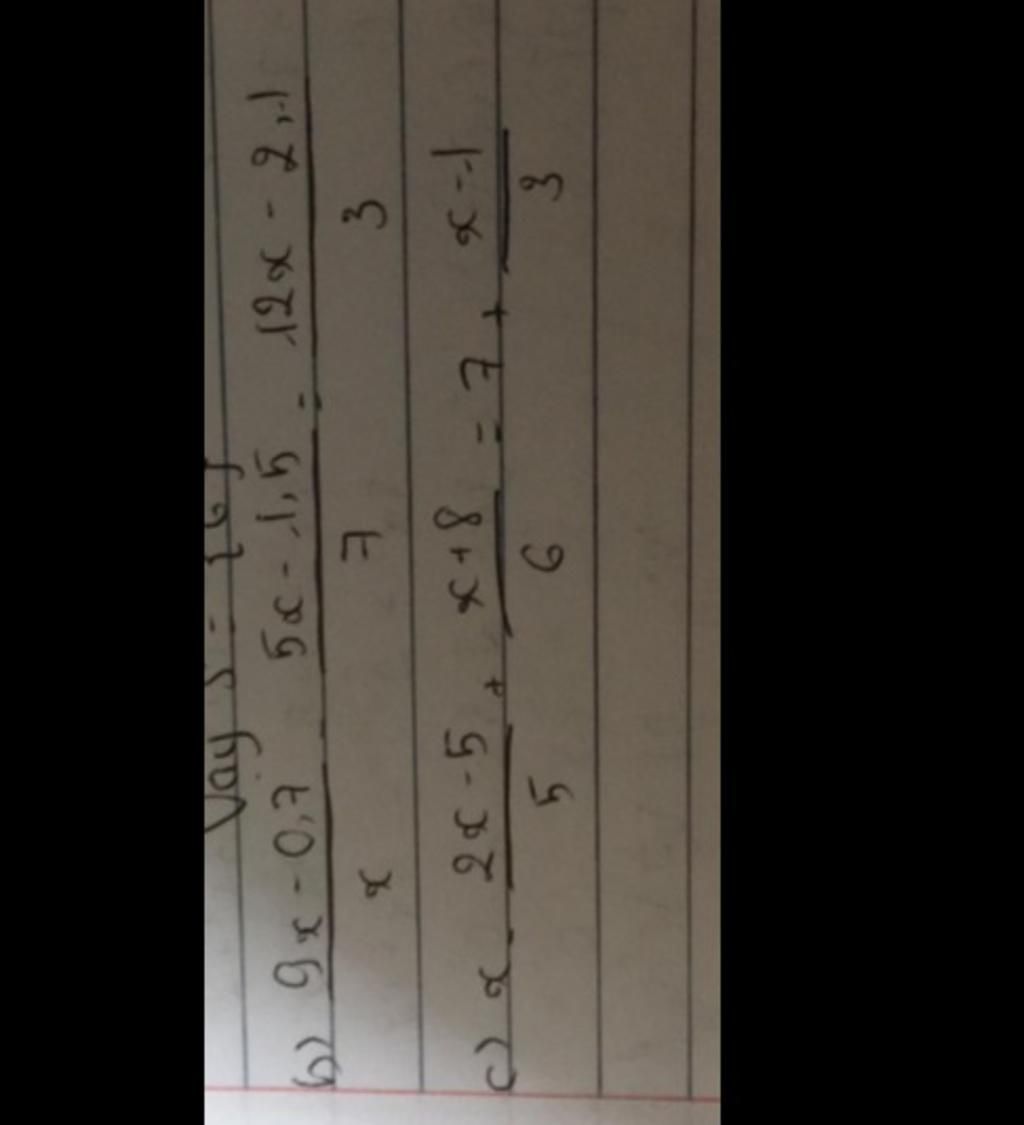 Vậy S = {6}
b) 9x - 0,7 / x - 5x - 1,5 / 7 = 12x - 2,1 / 3
c) x - 2x - 5 / 5 + x + 8 / 6 = 7 + x - 1 / 3